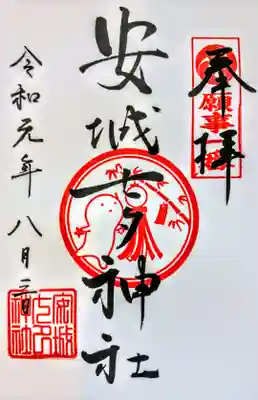 奉拝
願事
安城七夕神社
令和元年八月二日
安城
七夕
神社